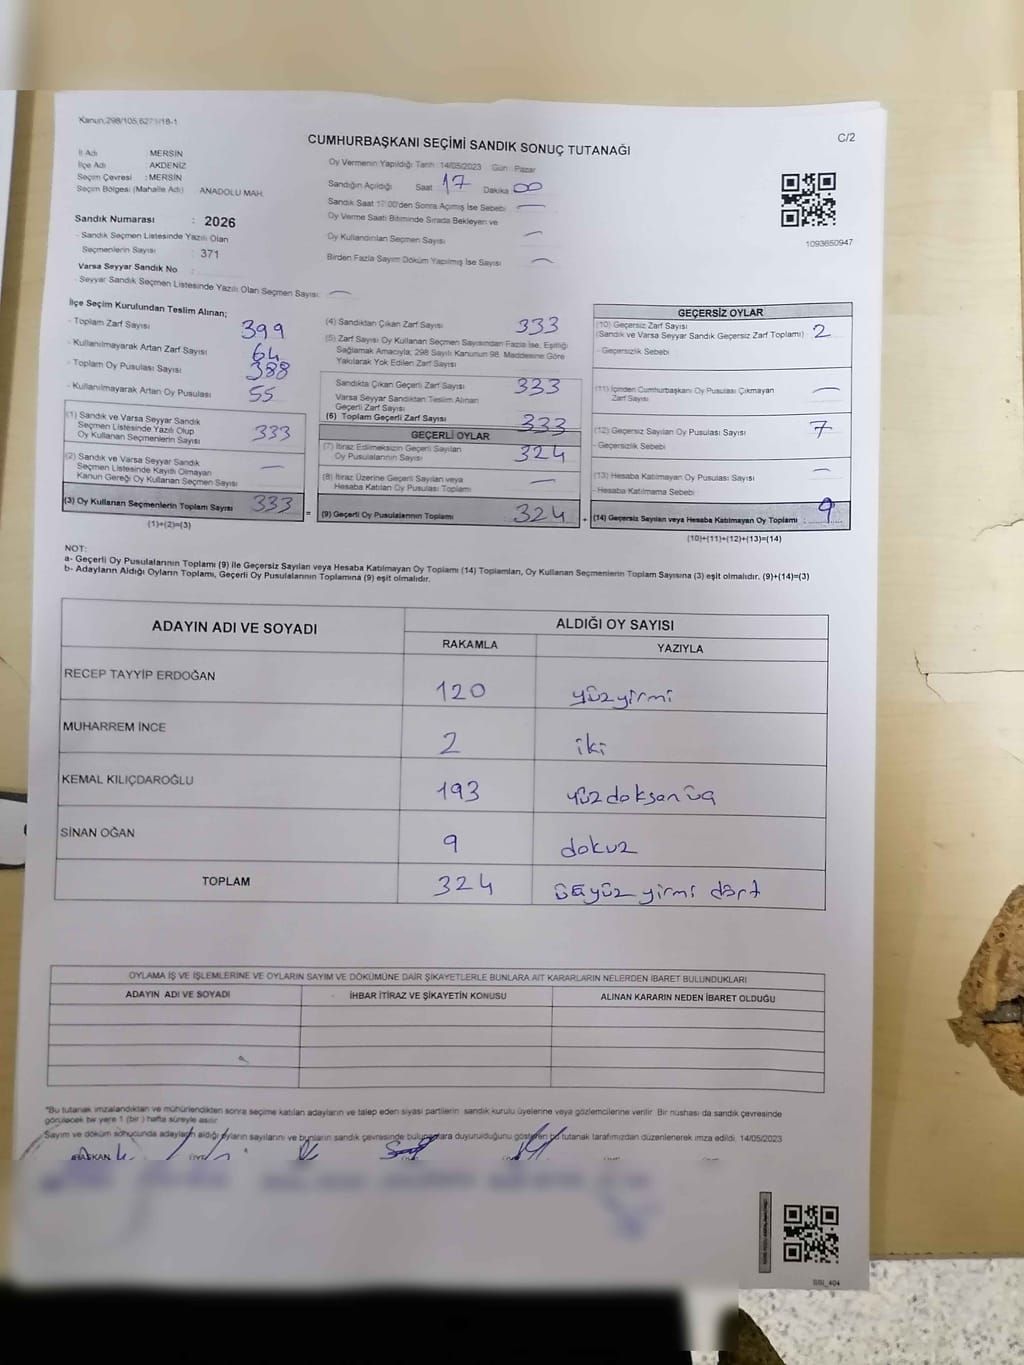 Kanun,298/105,6271/18-1
C/2
CUMHURBAŞKANI SEÇİMİ SANDIK SONUÇ TUTANAĞI
İl Adı : MERSİN
İlçe Adı : AKDENİZ
Seçim Çevresi : MERSİN
Seçim Bölgesi (Mahalle Adı) ANADOLU MAH.
Sandık Numarası : 2026
- Sandık Seçmen Listesinde Yazılı Olan
Seçmenlerin Sayısı : 371
Varsa Seyyar Sandık No :
- Seyyar Sandık Seçmen Listesinde Yazılı Olan Seçmen Sayısı: —
Oy Vermenin Yapıldığı Tarih :14/05/2023 Gün : Pazar
Sandığın Açıldığı Saat 17 Dakika 00
Sandık Saat 17:00'den Sonra Açılmış İse Sebebi —
Oy Verme Saati Bitiminde Sırada Bekleyen ve
Oy Kullandırılan Seçmen Sayısı —
Birden Fazla Sayım Döküm Yapılmış İse Sayısı —
1093650947
İlçe Seçim Kurulundan Teslim Alınan;
- Toplam Zarf Sayısı 399
- Kullanılmayarak Artan Zarf Sayısı 64
- Toplam Oy Pusulası Sayısı 388
- Kullanılmayarak Artan Oy Pusulası 55
(1) Sandık ve Varsa Seyyar Sandık
Seçmen Listesinde Yazılı Olup
Oy Kullanan Seçmenlerin Sayısı 333
(2) Sandık ve Varsa Seyyar Sandık
Seçmen Listesinde Kayıtlı Olmayan
Kanun Gereği Oy Kullanan Seçmen Sayısı —
(3) Oy Kullanan Seçmenlerin Toplam Sayısı 333
(1)+(2)=(3)
(4) Sandıktan Çıkan Zarf Sayısı 333
(5) Zarf Sayısı Oy Kullanan Seçmen Sayısından Fazla İse, Eşitliği
Sağlamak Amacıyla; 298 Sayılı Kanunun 98. Maddesine Göre
Yakılarak Yok Edilen Zarf Sayısı
Sandıkta Çıkan Geçerli Zarf Sayısı 333
Varsa Seyyar Sandıktan Teslim Alınan
Geçerli Zarf Sayısı
(6) Toplam Geçerli Zarf Sayısı 333
GEÇERLİ OYLAR
(7) İtiraz Edilmeksizin Geçerli Sayılan
Oy Pusulalarının Sayısı 324
(8) İtiraz Üzerine Geçerli Sayılan veya
Hesaba Katılan Oy Pusulası Toplamı —
= (9) Geçerli Oy Pusulalarının Toplamı 324
GEÇERSİZ OYLAR
(10) Geçersiz Zarf Sayısı
(Sandık ve Varsa Seyyar Sandık Geçersiz Zarf Toplamı) 2
- Geçersizlik Sebebi
(11) İçinden Cumhurbaşkanı Oy Pusulası Çıkmayan
Zarf Sayısı —
(12) Geçersiz Sayılan Oy Pusulası Sayısı 7
- Geçersizlik Sebebi
(13) Hesaba Katılmayan Oy Pusulası Sayısı —
- Hesaba Katılmama Sebebi
+ (14) Geçersiz Sayılan veya Hesaba Katılmayan Oy Toplamı : 9
(10)+(11)+(12)+(13)=(14)
NOT:
a- Geçerli Oy Pusulalarının Toplamı (9) ile Geçersiz Sayılan veya Hesaba Katılmayan Oy Toplamı (14) Toplamları, Oy Kullanan Seçmenlerin Toplam Sayısına (3) eşit olmalıdır. (9)+(14)=(3)
b- Adayların Aldığı Oyların Toplamı, Geçerli Oy Pusulalarının Toplamına (9) eşit olmalıdır.
ADAYIN ADI VE SOYADI ALDIĞI OY SAYISI
RAKAMLA YAZIYLA
RECEP TAYYİP ERDOĞAN 120 yüzyirmi
MUHARREM İNCE 2 iki
KEMAL KILIÇDAROĞLU 193 yüzdoksanüç
SİNAN OĞAN 9 dokuz
TOPLAM 324 üçyüz yirmi dört
OYLAMA İŞ VE İŞLEMLERİNE VE OYLARIN SAYIM VE DÖKÜMÜNE DAİR ŞİKAYETLERLE BUNLARA AİT KARARLARIN NELERDEN İBARET BULUNDUKLARI
ADAYIN ADI VE SOYADI İHBAR İTİRAZ VE ŞİKAYETİN KONUSU ALINAN KARARIN NEDEN İBARET OLDUĞU
*Bu tutanak imzalandıktan ve mühürlendikten sonra seçime katılan adayların ve talep eden siyasi partilerin sandık kurulu üyelerine veya gözlemcilerine verilir. Bir nüshası da sandık çevresinde
görülecek bir yere 1 (bir ) hafta süreyle asılır.
Sayım ve döküm sonucunda adayların aldığı oyların sayılarını ve bunların sandık çevresinde bulunanlara duyurulduğunu gösteren bu tutanak tarafımızdan düzenlenerek imza edildi. 14/05/2023
BAŞKAN